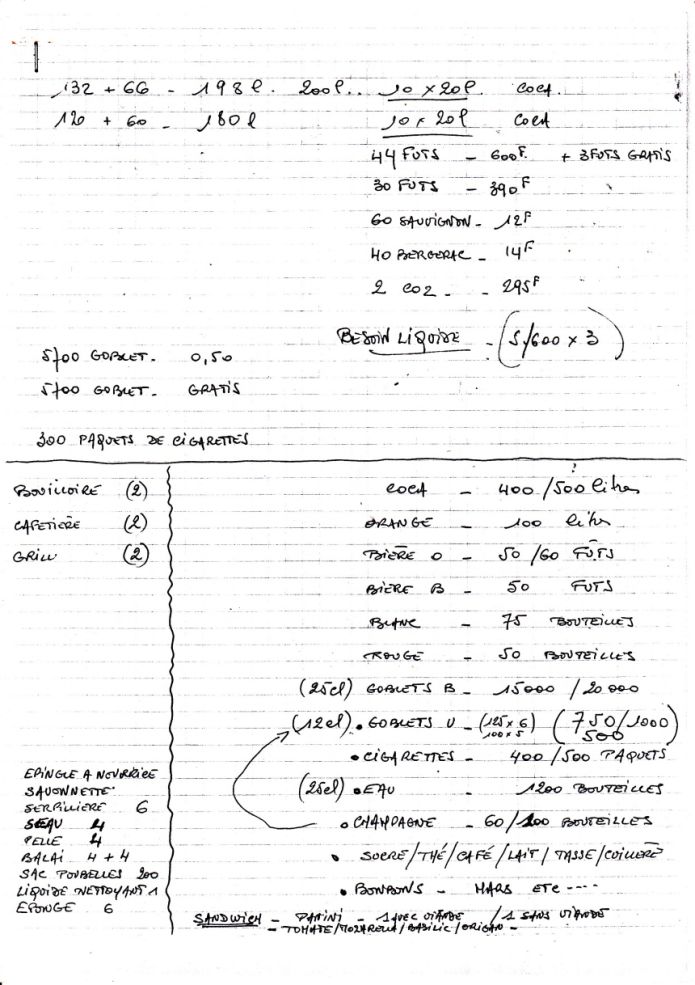 132 + 66 - 198 l. 200 l.. 10 x 20 l. COCA.
120 + 60 - 180 l 10 x 20 l COCA
44 FUTS - 600F. + 3 FUTS GRATIS
30 FUTS - 390F
60 SAUVIGNON - 12F
40 BERGERAC - 14F
2 CO2 - - 295F
BESOIN LIQUIDE - (5/600 x 3)
5100 GOBLET. 0,50
5100 GOBLET. GRATIS
300 PAQUETS DE CIGARETTES
BOUILLOIRE (2)
CAFETIERE (2)
GRILL (2)
EPINGLE A NOURRICE
SAVONNETTE
SERPILLIERE 6
SEAU 4
PELLE 4
BALAI 4 + 4
SAC POUBELLES 200
LIQUIDE NETTOYANT 1
EPONGE 6
COCA - 400/500 litres
ORANGE - 100 litres
BIÈRE O - 50/60 FÛTS
BIÈRE B - 50 FUTS
BLANC - 75 BOUTEILLES
ROUGE - 50 BOUTEILLES
(25cl) GOBLETS B - 15000 / 20 000
(12cl) • GOBLETS V - (125 x 6) (750/1000)
100 x 5 500
• CIGARETTES - 400/500 PAQUETS
(25cl) • EAU - 1200 BOUTEILLES
• CHAMPAGNE - 60/100 BOUTEILLES
• SUCRE/THÉ/CAFÉ/LAIT/TASSE/CUILLERE
• BONBONS - MARS ETC ----
SANDWICH - PANINI - 1 AVEC VIANDE / 1 SANS VIANDE
- TOMATE/MOZARELLA/BASILIC/ORIGAN -